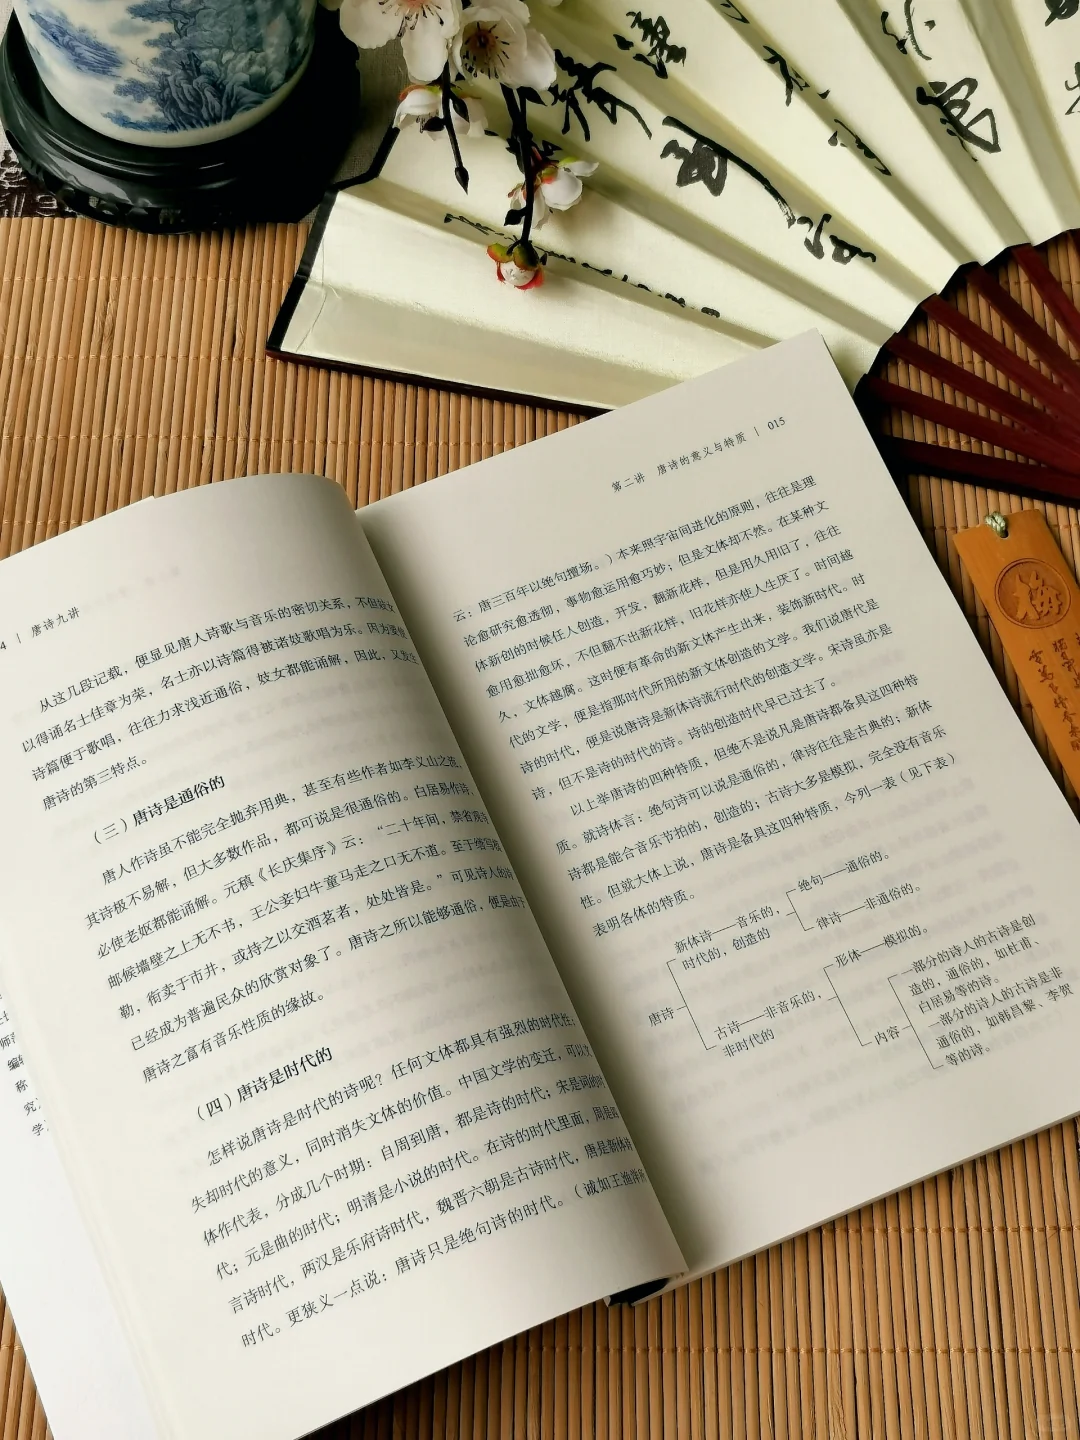 4 | 唐诗九讲
从这几段记载，便显见唐人诗歌与音乐的密切关系，不但妓女
以得诵名士佳章为荣，名士亦以诗篇得被诸妓歌唱为乐。因为要使
诗篇便于歌唱，往往力求浅近通俗，妓女都能诵解，因此，又发生
唐诗的第三特点。
（三）唐诗是通俗的
唐人作诗虽不能完全抛弃用典，甚至有些作者如李义山之流，
其诗极不易解，但大多数作品，都可说是很通俗的。白居易作诗，
必使老妪都能诵解。元稹《长庆集序》云：“二十年间，禁省观寺
邮候墙壁之上无不书，王公妾妇牛童马走之口无不道。至于缮写模
勒，衒卖于市井，或持之以交酒茗者，处处皆是。”可见诗人的诗
已经成为普遍民众的欣赏对象了。唐诗之所以能够通俗，便是由于
唐诗之富有音乐性质的缘故。
（四）唐诗是时代的
怎样说唐诗是时代的诗呢？任何文体都具有强烈的时代性；
失却时代的意义，同时消失文体的价值。中国文学的变迁，可以文
体作代表，分成几个时期：自周到唐，都是诗的时代；宋是词的时
代；元是曲的时代；明清是小说的时代。在诗的时代里面，周是四
言诗时代，两汉是乐府诗时代，魏晋六朝是古诗时代，唐是新体诗
时代。更狭义一点说：唐诗只是绝句诗的时代。（诚如王渔洋所
第二讲 唐诗的意义与特质 | 015
云：唐三百年以绝句擅场。）本来照宇宙间进化的原则，往往是理
论愈研究愈透彻，事物愈运用愈巧妙；但是文体却不然。在某种文
体新创的时候任人创造，开发，翻新花样，但是用久用旧了，往往
愈用愈拙愈坏，不但翻不出新花样，旧花样亦使人生厌了。时间越
久，文体越腐。这时便有革命的新文体产生出来，装饰新时代。时
代的文学，便是指那时代所用的新文体创造的文学。我们说唐代是
诗的时代，便是说唐诗是新体诗流行时代的创造文学。宋诗虽亦是
诗，但不是诗的时代的诗。诗的创造时代早已过去了。
以上举唐诗的四种特质，但绝不是说凡是唐诗都备具这四种特
质。就诗体言：绝句诗可以说是通俗的，律诗往往是古典的；新体
诗都是能合音乐节拍的，创造的；古诗大多是模拟，完全没有音乐
性。但就大体上说，唐诗是备具这四种特质，今列一表（见下表）
表明各体的特质。
唐诗
新体诗——音乐的，
时代的，创造的
绝句——通俗的。
律诗——非通俗的。
古诗——非音乐的，
非时代的
形体——模拟的。
内容
一部分的诗人的古诗是创
造的，通俗的，如杜甫、
白居易等的诗。
一部分的诗人的古诗是非
通俗的，如韩昌黎、李贺
等的诗。
梅